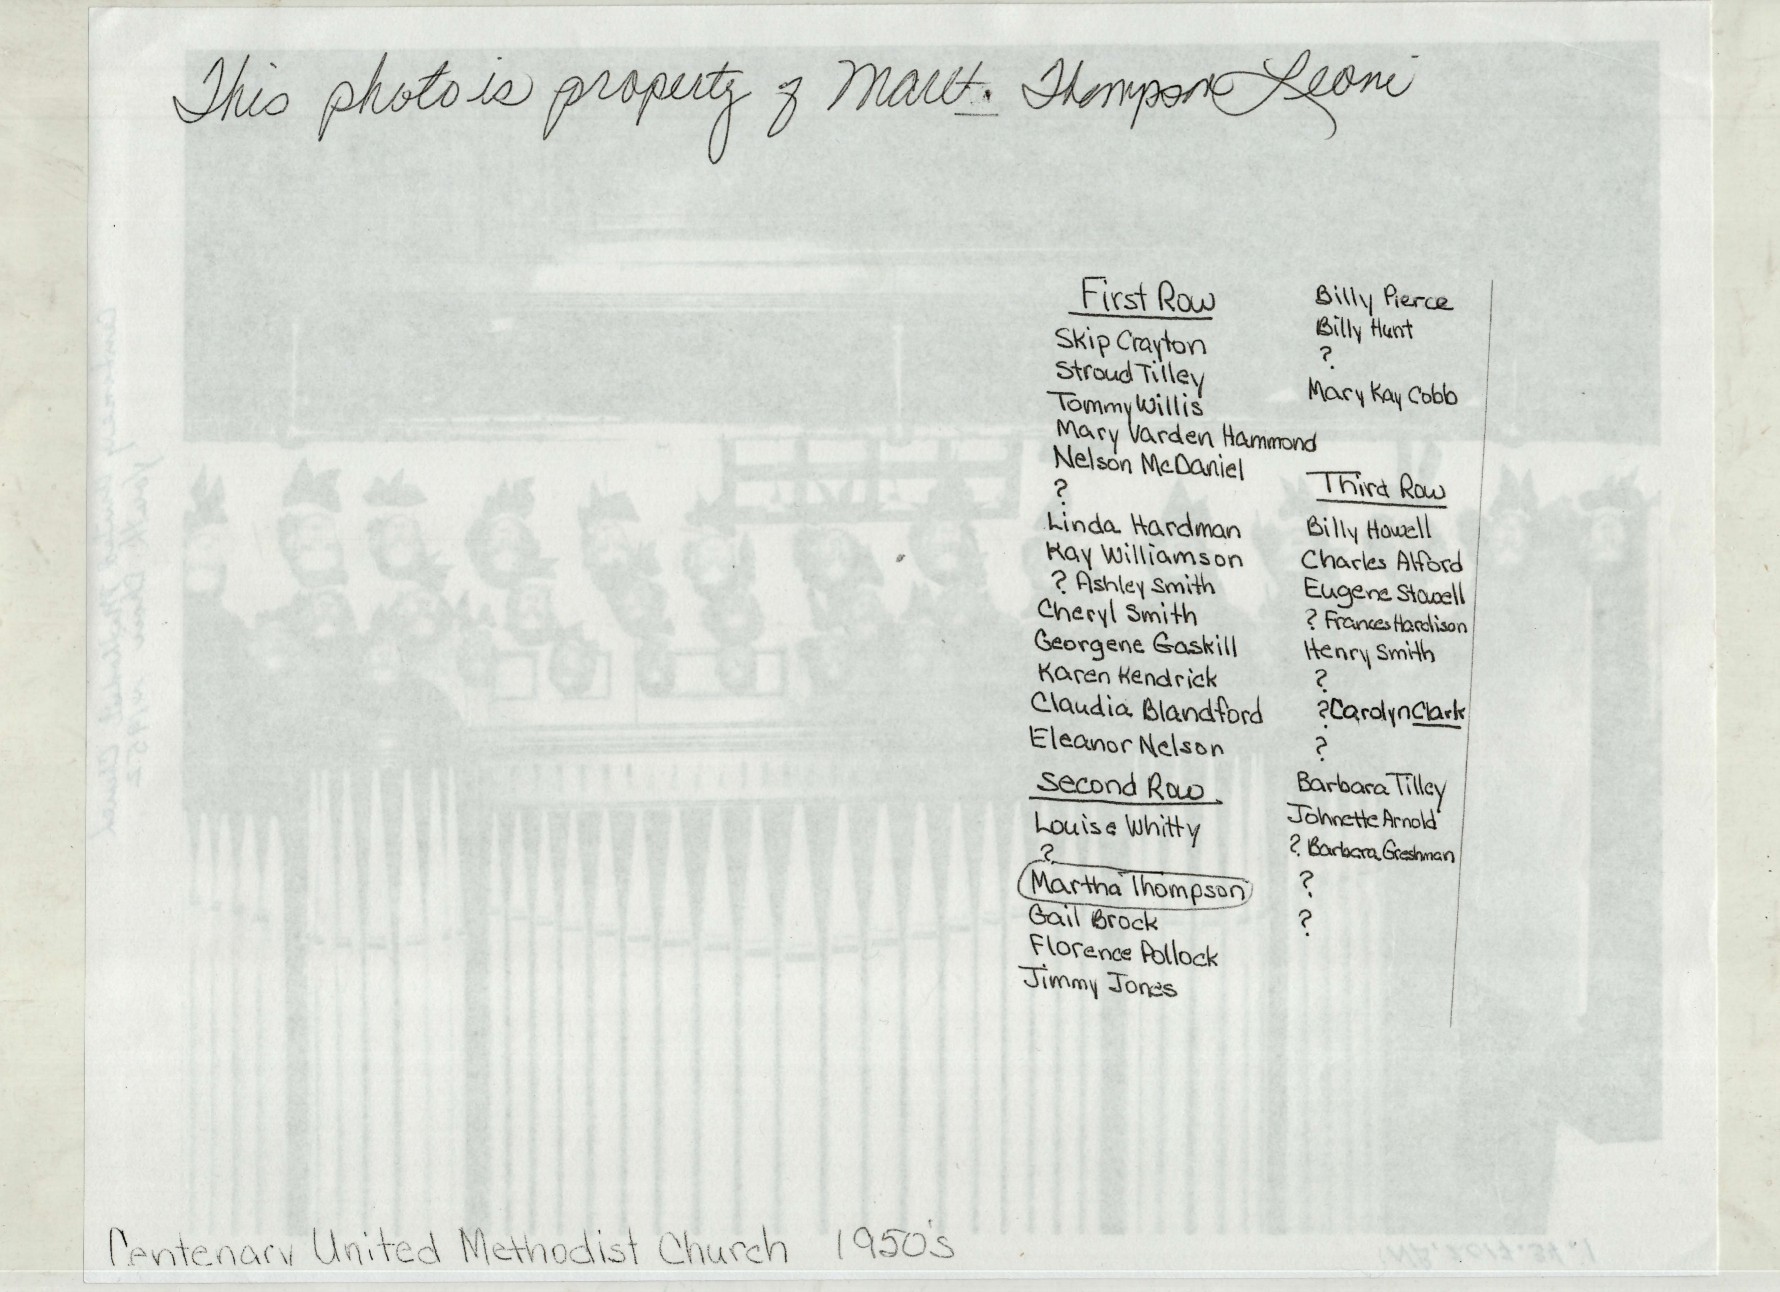 This photo is property of Thompson Leoni
First Row
Skip Crayton
Stroud Tilley
Tommy Willis
Mary Varden Hammond
Nelson McDaniel
?
Linda Hardman
Kay Williamson
? Ashley Smith
Cheryl Smith
Georgene Gaskill
Karen Kendrick
Claudia Blandford
Eleanor Nelson
Second Row
Louise Whitty
?
Martha Thompson
Gail Brock
Florence Pollock
Jimmy Jones
Billy Pierce
Billy Hunt
?
Mary Kay Cobb
Third Row
Billy Howell
Charles Alford
Eugene
? Frances Hardison
Henry Smith
?
? Carolyn Clark
?
Barbara Tilley
Johnette Arnold
? Barbara Greshman
?
?
Centenary United Methodist Church 1950's